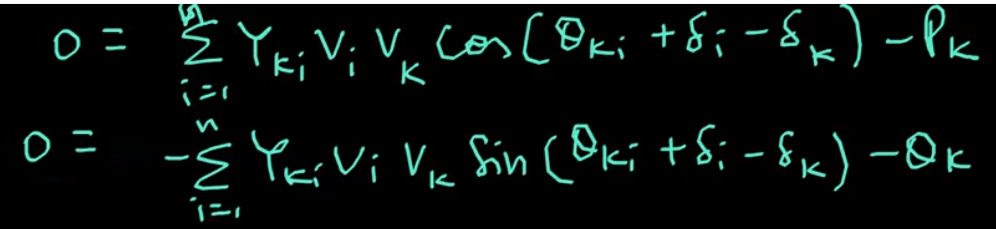 0 = Σ_{i=1}^{n} Y_{ki} V_i V_k Cos(θ_{ki} + δ_i - δ_k) - P_k
0 = -Σ_{i=1}^{n} Y_{ki} V_i V_k Sin(θ_{ki} + δ_i - δ_k) - Q_k